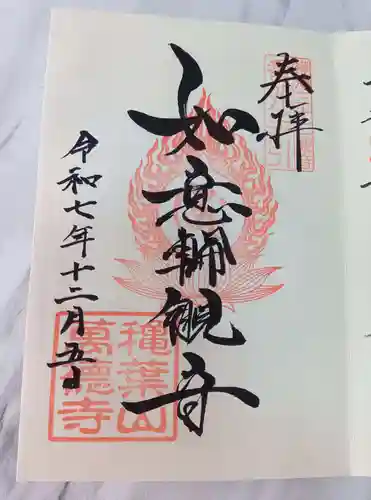 奉拝
如意輪観音
令和七年十二月五日
穐葉山
萬徳寺